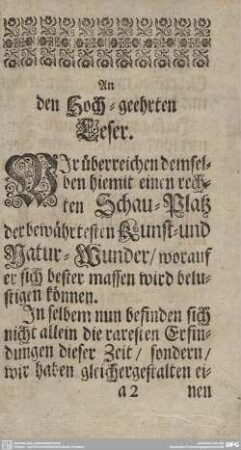 An
den Hoch-geehrten
Leser.
WIr überreichen demsel-
ben hiemit einen rech-
ten Schau-Platz
der bewährtesten Kunst- und
Natur-Wunder / worauf
er sich bester massen wird belu-
stigen können.
In selbem nun befinden sich
nicht allein die raresten Erfin-
dungen dieser Zeit / sondern /
wir haben gleichergestalten ei-
a 2 nen